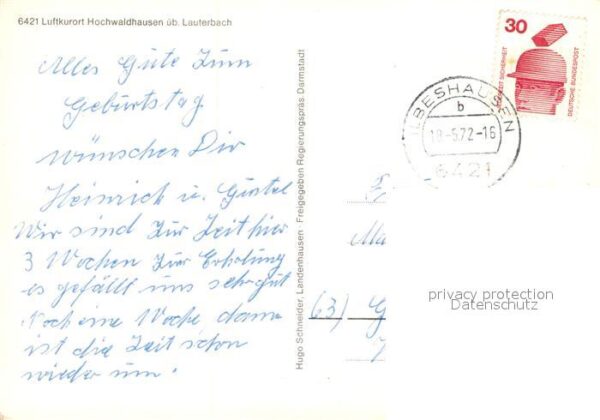 6421 Luftkurort Hochwaldhausen üb. Lauterbach
Alles Gute zum
Geburtstag
wünschen Dir
Heinrich u. Gustel
Wir sind zur Zeit hier
3 Wochen zur Erholung
es gefällt uns sehr gut
Noch eine Woche dann
ist die Zeit schon
wieder um.
Hugo Schneider, Landenhausen · Freigegeben Regierungspräs Darmstadt
30
JEDERZEIT SICHERHEIT
DEUTSCHE BUNDESPOST
ILBESHAUSEN
b
18-5.72-16
6421
Ma
(63) G
privacy protection
Datenschutz